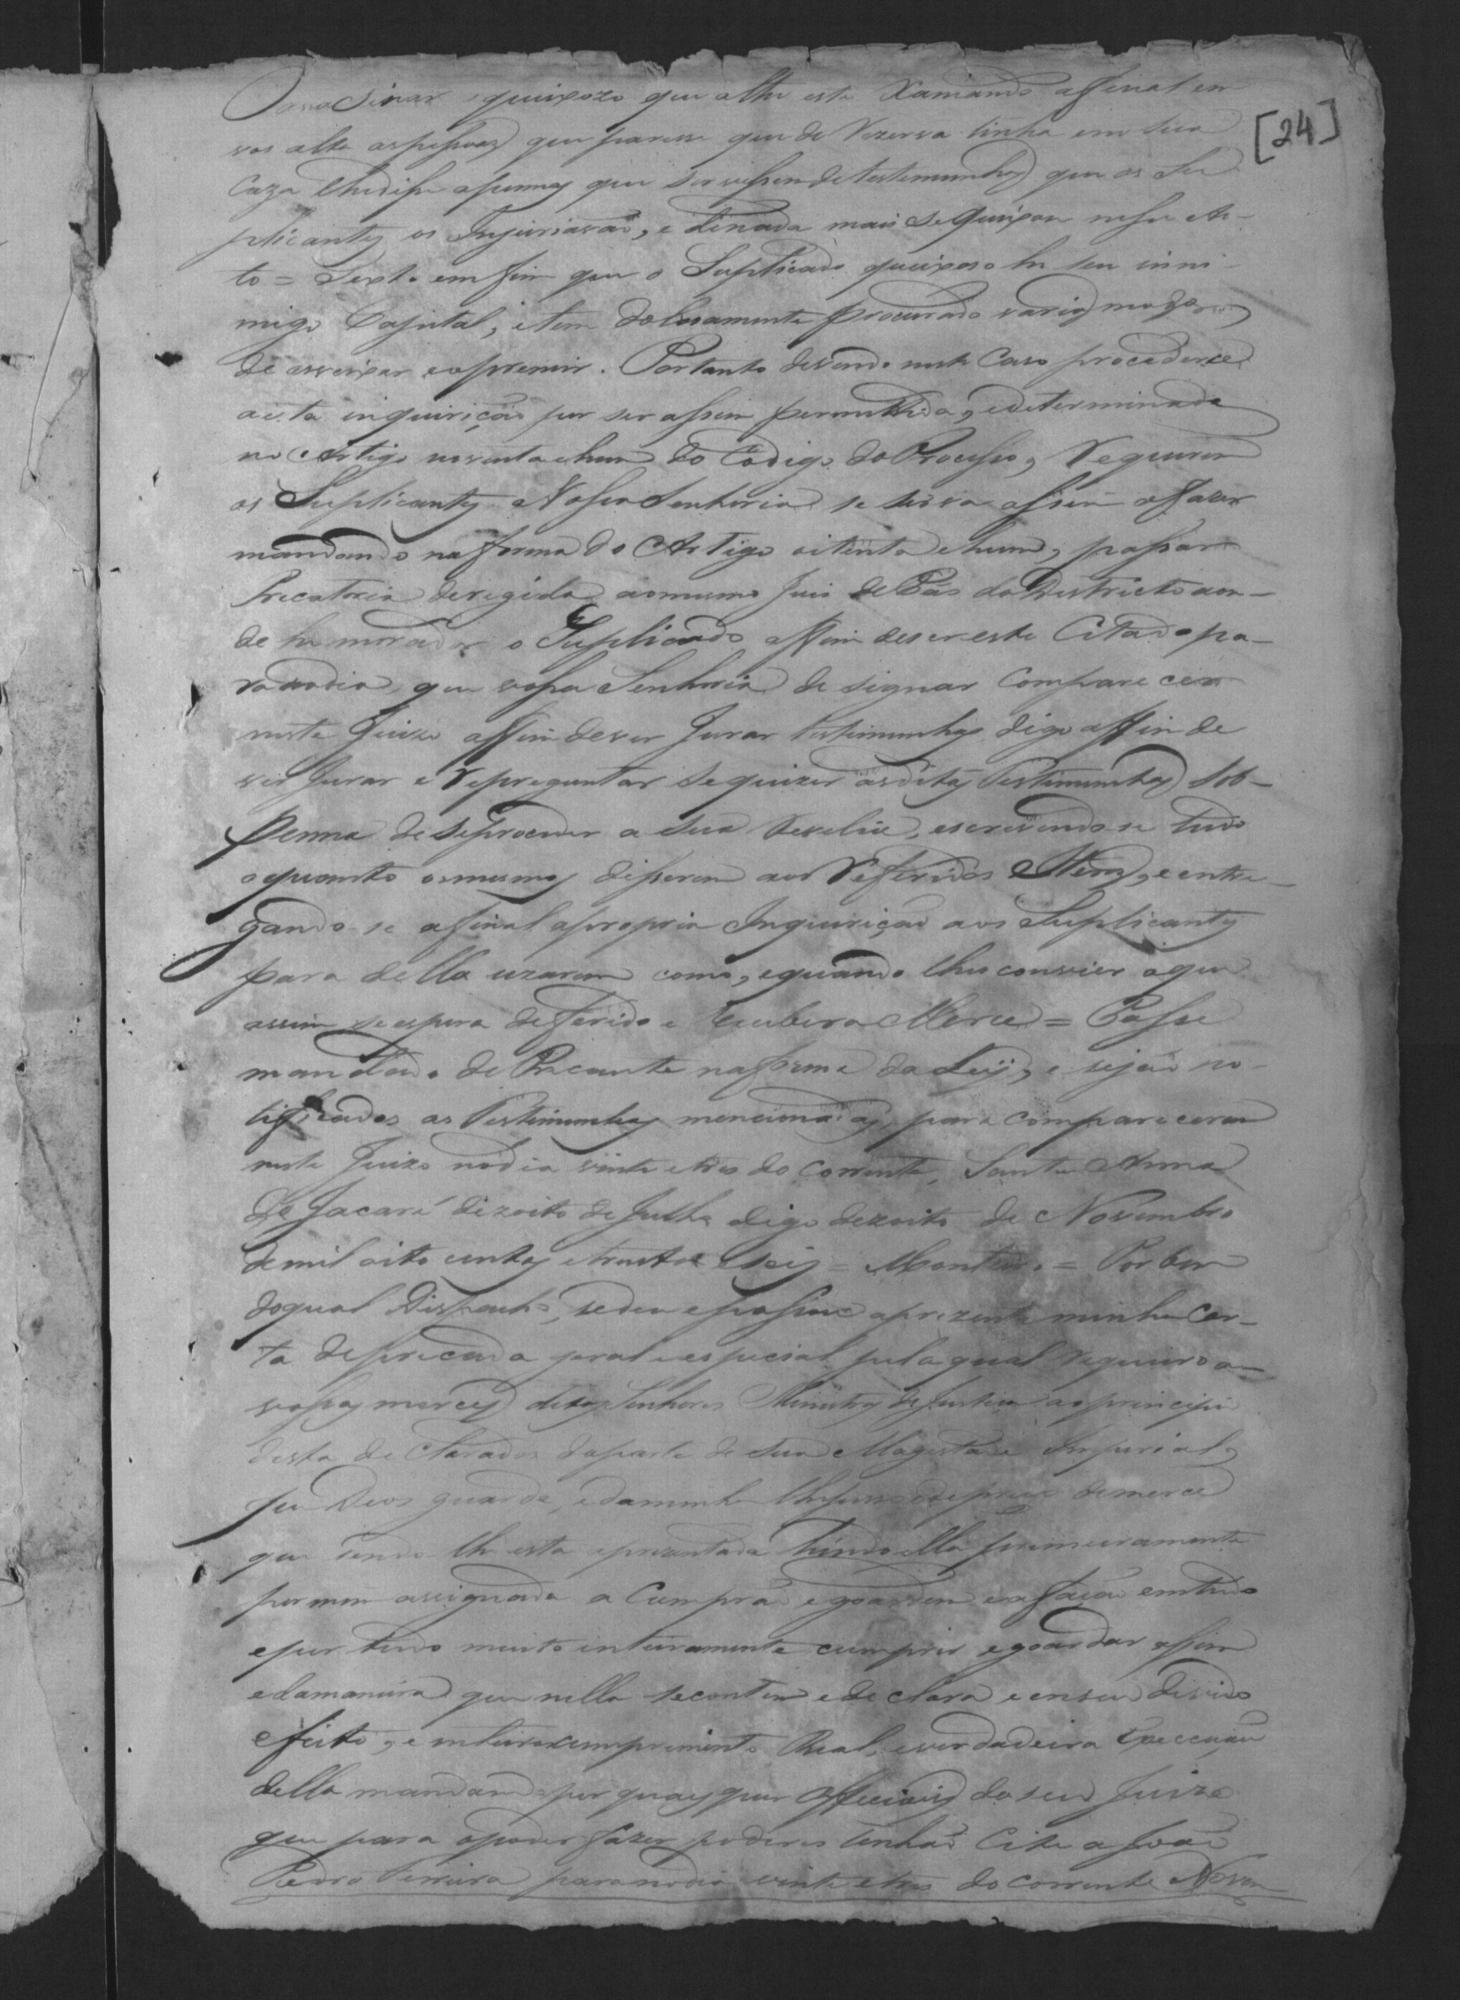 [24]
assacinar queixozo que alli este xamando afinal em
vos alta as pessoas que paresse que de Rezerva tinha em sua
Caza lhe disse apennas que servissem de testemunhas que os Su-
plicantes os Injuriavão, e de nada mais se queixou nesse Ac-
to = Sexto em fim que o Suplicado queixoso he seu inni-
migo Capital, e tem dolosamente procurado varios modos
de avexar e oprimir. Portanto devendo neste Caso procederce
a esta inquirição por ser assim permittida, e determinada
no Artigo noventa e hum do Codigo do Processo, Requerem
os Suplicantes a Vossa Senhoria se sirva assim o fazer
mandando na forma do Artigo oitenta e hum, passar
Precatoria derigida ao mesmo Juis de Pás do Districto aon-
de he morador o Suplicado affim de ser este Citado pa-
ra no dia que vossa Senhoria de signar Comparecer
neste Juizo affim de ver Jurar testemunhas digo affin de
ver Jurar e Repreguntar se quizer as ditas Testemunhas Sob-
penna de se proceder a sua Revelia, escrevendo se tudo
o quanto os mesmos disserem aos Referidos Itens, e entre-
gando-se afinal a propria Inquirição aos Suplicantes
para della uzarem como, e quando lhes convier o que
assim se espera defferido e Recebera Merce = Passe
mandado de Precante na forma da Ley, e sejão no-
tificados as Testemunhas mencionadas, para compareceren
neste Juizo no dia vinte e tres do Corrente, Santa Anna
de Jacaré dizoito de Julho digo dezoito de Novembro
de mil oito centos e trinta e seis = Monteiro = Por bem
do qual Dispacho, se deu e passou a prezente minha Car-
ta deprecada geral e especial pela qual requeiro a
vossas merces ditos Senhores Ministros de Justiça ao principio
desta de Clarados da parte de Sua Magestade Imperial,
que Deos guarde, e da minha lhe pesso de merce
que sendo lhe esta aprezentada hindo ella primeiramente
por mim assignada a Cumprão e goardem e a fação em tudo
e por tudo muito inteiramente cumprir e goardar assim
e da maneira que nella se contem e de clara e en seu devido
efeito, e inteiro cumprimento Real, e verdadeira Execução
della mandem por quaes quer officiais do seu Juizo
que para o poder fazer poderes tenhão Cite a João
Pedro Ferreira para no dia vinte e tres do corrente Novem